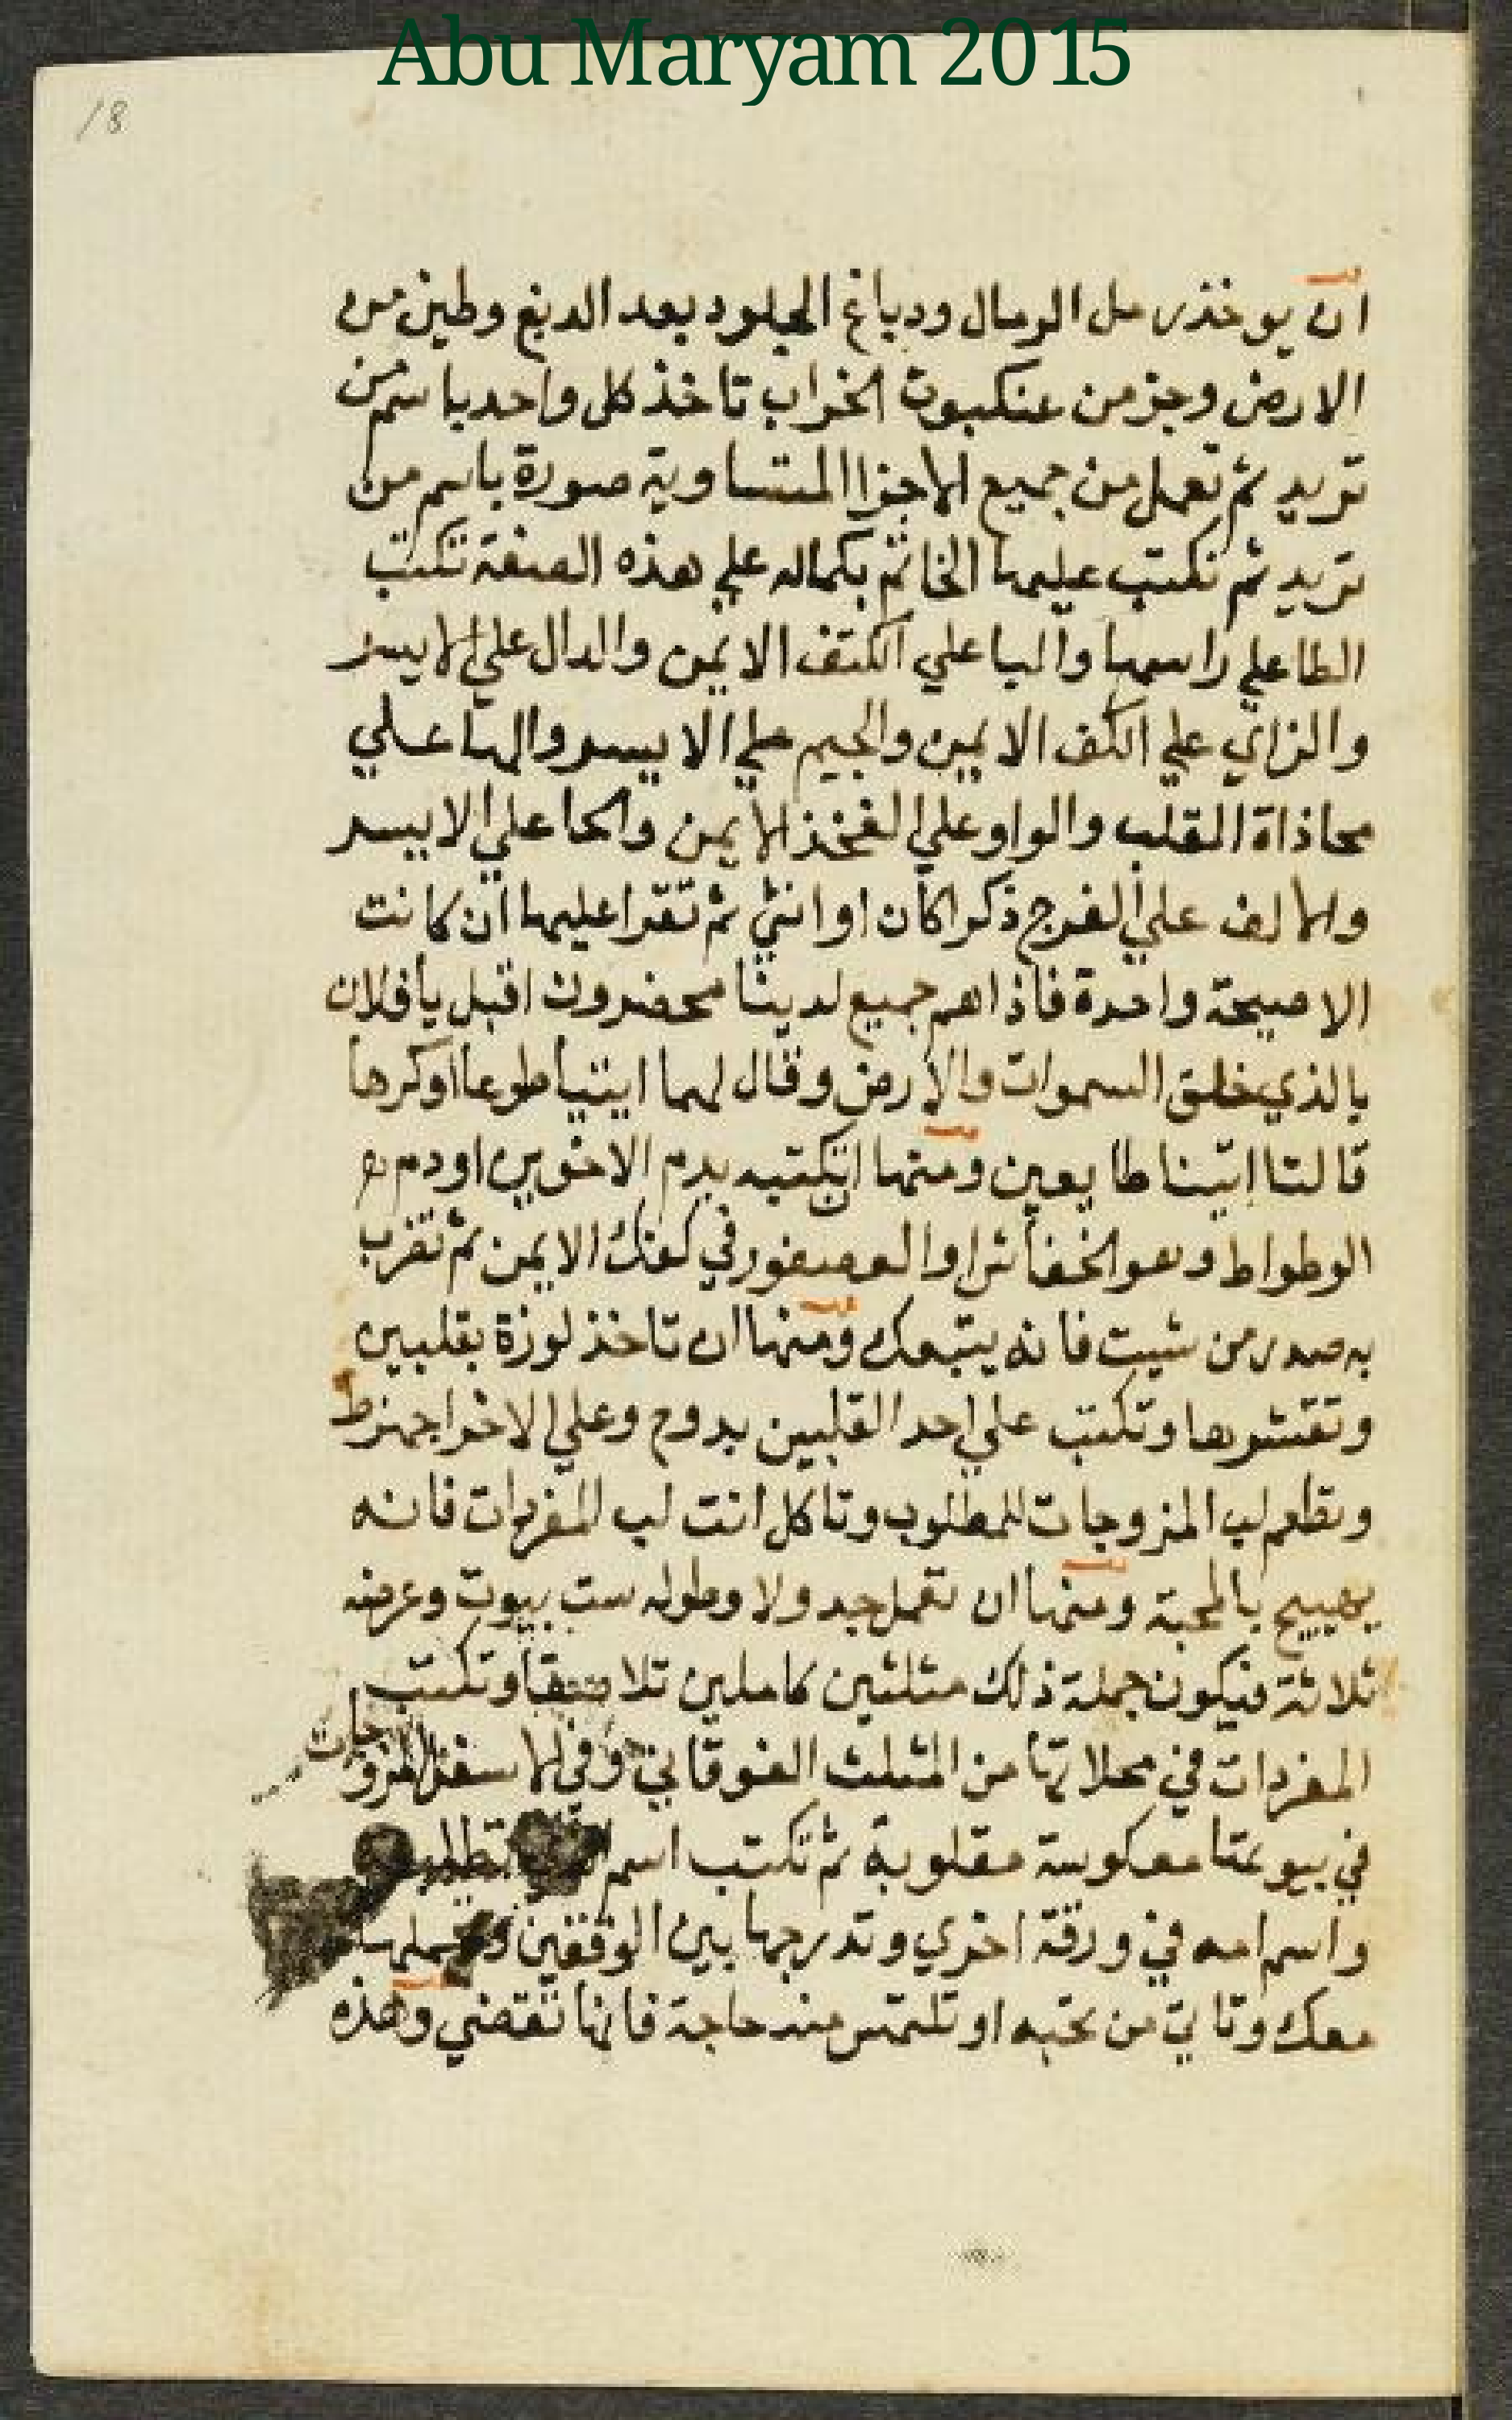 Abu Maryam 2015
18
ان يوخذ رمل الرمال ودباغ الجلود بعد الدبغ وطين من
الارض وجز من عنكبوت الخراب تاخذ كل واحد باسم من
تريد ثم تعمل من جميع الاجزا المتساوية صورة باسم من
تريد ثم تكتب عليها الخاتم بكماله علي هذه الصفة تكتب
الطا علي راسها والبا علي الكتف الايمن والدال علي الايسر
والزاي علي الكف الايمن والجيم علي الايسر والها علي
محاذاة القلب والواو علي الفخذ الايمن والحا علي الايسر
والالف علي الفرج ذكرا كان او انثي ثم تقرا عليها ان كانت
الا صيحة واحدة فاذا هم جميع لدينا محضرون اقبل يا فلان
بالذي خلق السموات والارض وقال لهما ايتيا طوعا اوكرها
قالتا اتينا طايعين ومنها ان تكتبه بدم الاخوين او دم
الوطواط وهو الخفاش او العصفور في كفك الايمن ثم تضرب
به صدر من شيت فانه يتبعك ومنها ان تاخذ لوزة بقلبين
وتقشرها وتكتب علي احد القلبين بدوح وعلي الاخر اجهزط
وتطعم لب المزوجات للمطلوب وتاكل انت لب المفردات فانه
يهيج بالمحبة ومنها ان تعمل جدولا وطوله ست بيوت وعرضه
ثلاثة فيكون جملة ذلك مثلثين كاملين تلاصقا وتكتب
المفردات في محلاتها من المثلث الفوقاني وفي الاسفل المزوجات
في بيوتها معكوسة مقلوبة ثم تكتب اسم
واسم امه في ورقة اخري وتدرجها بين الوفقين وتحملها
معك وتاتي من تحبه او تلتمس منه حاجة فانها تقضي وهذه